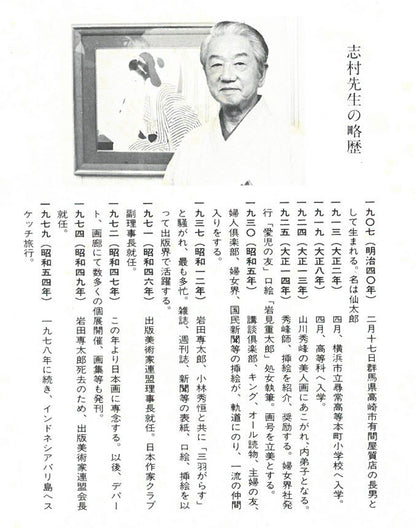 志村先生の略歴
一九〇七(明治四〇年) 二月十七日群馬県高崎市有間屋質店の長男と
して生まれる。名は仙太郎
一九一三(大正二年) 四月、横浜市立尋常高等本町小学校へ入学。
一九一九(大正八年) 四月、高等科へ入学。
一九二四(大正一三年) 山川秀峰の美人画にあこがれ、内弟子となる。
一九二五(大正一四年) 秀峰師、挿絵を紹介、奨励する。婦女界社発
行「愛児の友」口絵「岩見重太郎」処女執筆。画号を立美とする。
一九三〇(昭和五年) 講談倶楽部、キング、オール読物、主婦の友、
婦人倶楽部、婦女界、国民新聞等の挿絵が、軌道にのり、一流の仲間
入りをする。
一九三七(昭和一二年) 岩田専太郎、小林秀恒と共に「三羽がらす」
と騒がれ、最も多忙。雑誌、週刊誌、新聞等の表紙、口絵、挿絵を以
って出版界で活躍する。
一九七一(昭和四六年) 出版美術家連盟理事長就任。日本作家クラブ
副理事長就任。
一九七二(昭和四七年) この年より日本画に専念する。以後、デパー
ト、画廊にて数多くの個展開催、画集等も発刊。
一九七四(昭和四九年) 岩田専太郎死去のため、出版美術家連盟会長
就任。
一九七九(昭和五四年) 一九七八年に続き、インドネシアバリ島へス
ケッチ旅行。